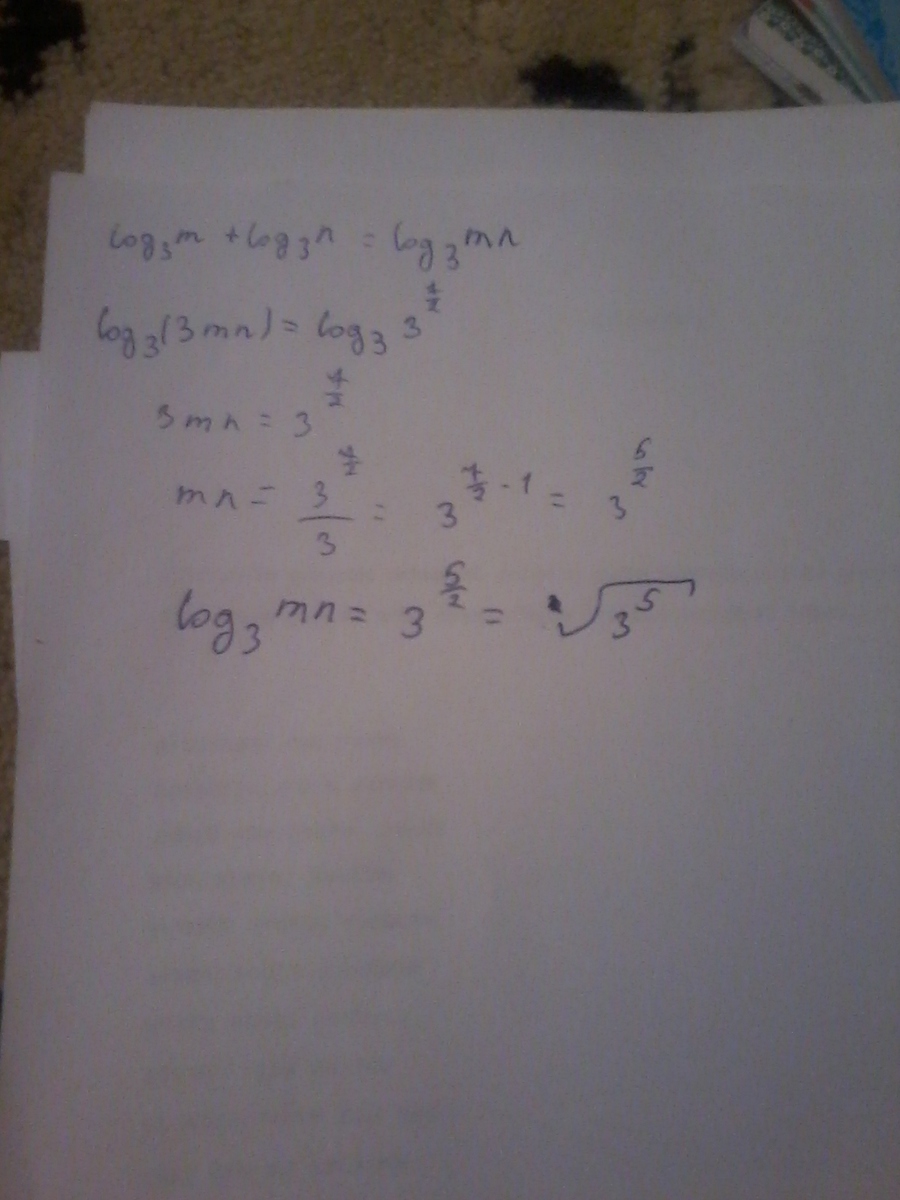 log₃m + log₃n = log₃mn
log₃(3mn) = log₃ 3^(7/2)
3mn = 3^(7/2)
mn = 3^(7/2)/3 = 3^(7/2 - 1) = 3^(5/2)
log₃ mn = 3^(5/2) = √(3⁵)